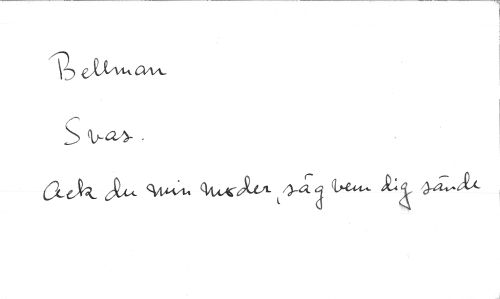 Bellman
Svas.
Ack du min moder, säg vem dig sände